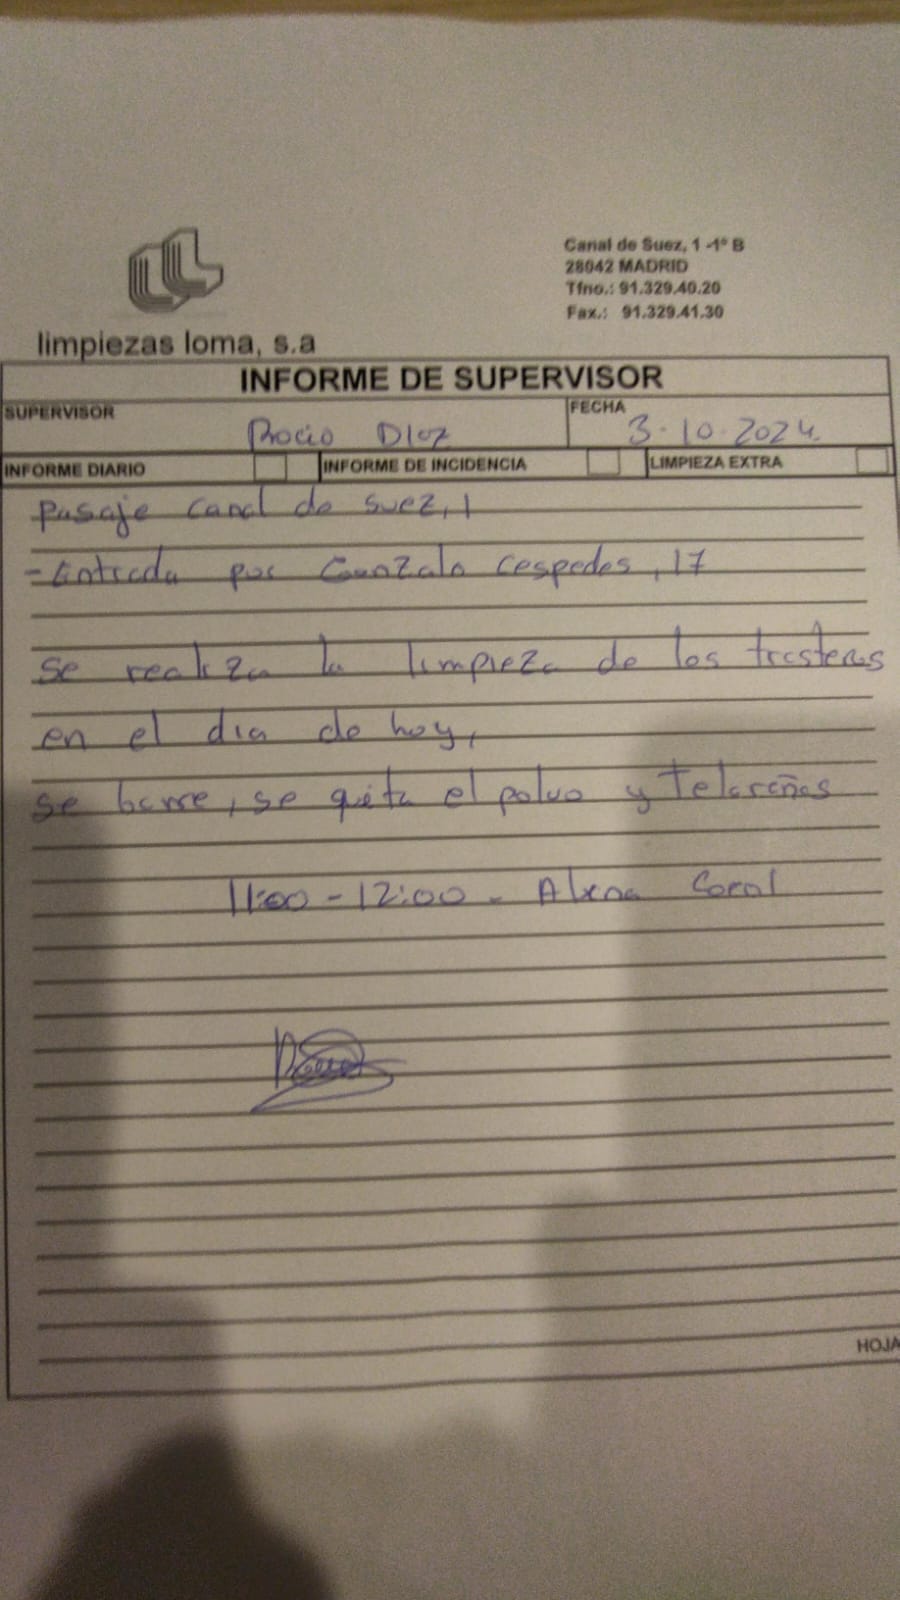 Canal de Suez, 1 -1º B
28042 MADRID
Tfno.: 91.329.40.20
Fax.: 91.329.41.30
limpiezas loma, s.a
INFORME DE SUPERVISOR
SUPERVISOR Rocio Diez FECHA 3-10-2024.
INFORME DIARIO INFORME DE INCIDENCIA LIMPIEZA EXTRA
Pasaje Canal de Suez, 1
- Entrada por Gonzalo Cespedes, 17
Se realiza la limpieza de los trasteros
en el dia de hoy,
se barre, se quita el polvo y Telarañas
11:00 - 12:00 - Coral
HOJA